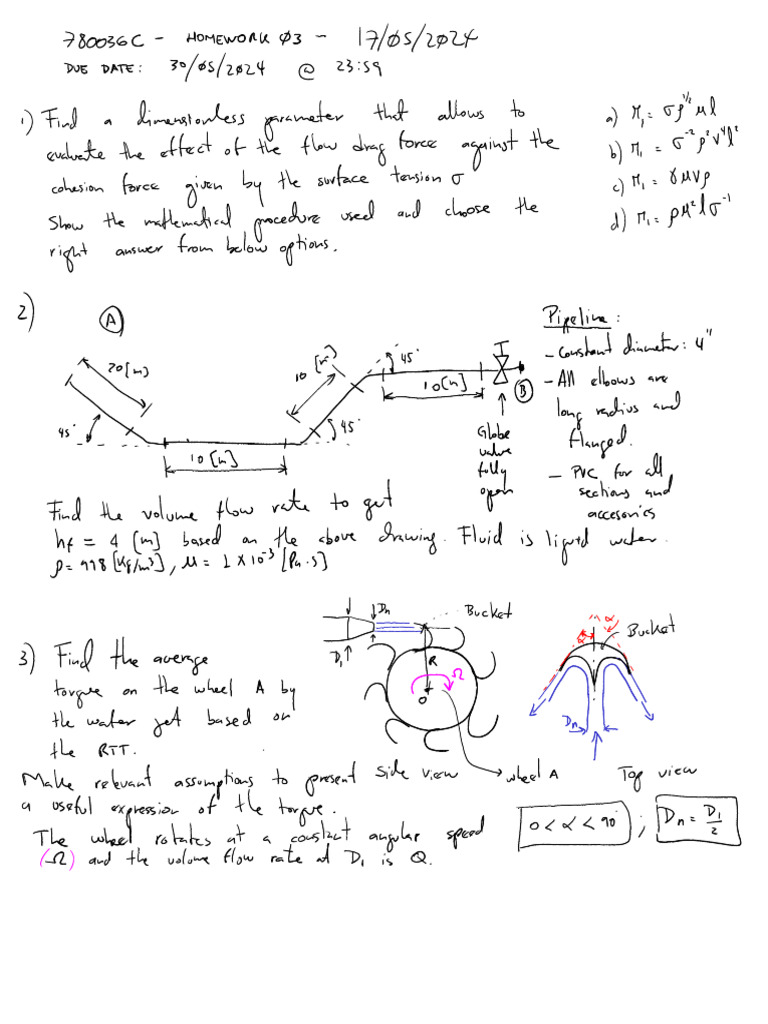 780036C - HOMEWORK 03 - 17/05/2024
DUE DATE: 30/05/2024 @ 23:59
1) Find a dimensionless parameter that allows to
evaluate the effect of the flow drag force against the
cohesion force given by the surface tension σ
Show the mathematical procedure used and choose the
right answer from below options.
a) π₁ = σρ^1/2 μl
b) π₁ = σ⁻²ρ²v⁴l²
c) π₁ = γμvρ
d) π₁ = ρμ²lσ⁻¹
2)
A
20[m]
45°
10[m]
10[m]
45°
45°
10[m]
B
Globe
valve
fully
open
Pipeline:
- Constant diameter: 4"
- All elbows are
long radius and
flanged.
- PVC for all
sections and
accesories
Find the volume flow rate to get
hf = 4 [m] based on the above drawing. Fluid is liquid water.
ρ=998[kg/m³], μ = 1×10⁻³[Pa·s]
3) Find the average
torque on the wheel A by
the water jet based on
the RTT.
Make relevant assumptions to present
a useful expression of the torque.
The wheel rotates at a constant angular speed
(Ω) and the volume flow rate at D₁ is Q.
Dn
D₁
Bucket
R
Ω
O
Side view
wheel A
α
α
Bucket
Dn
Top view
0<α<90° ; Dn = D₁/2